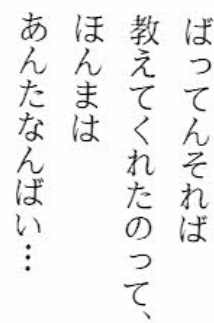 ばってんそれば
教えてくれたのって、
ほんまは
あんたなんばい…